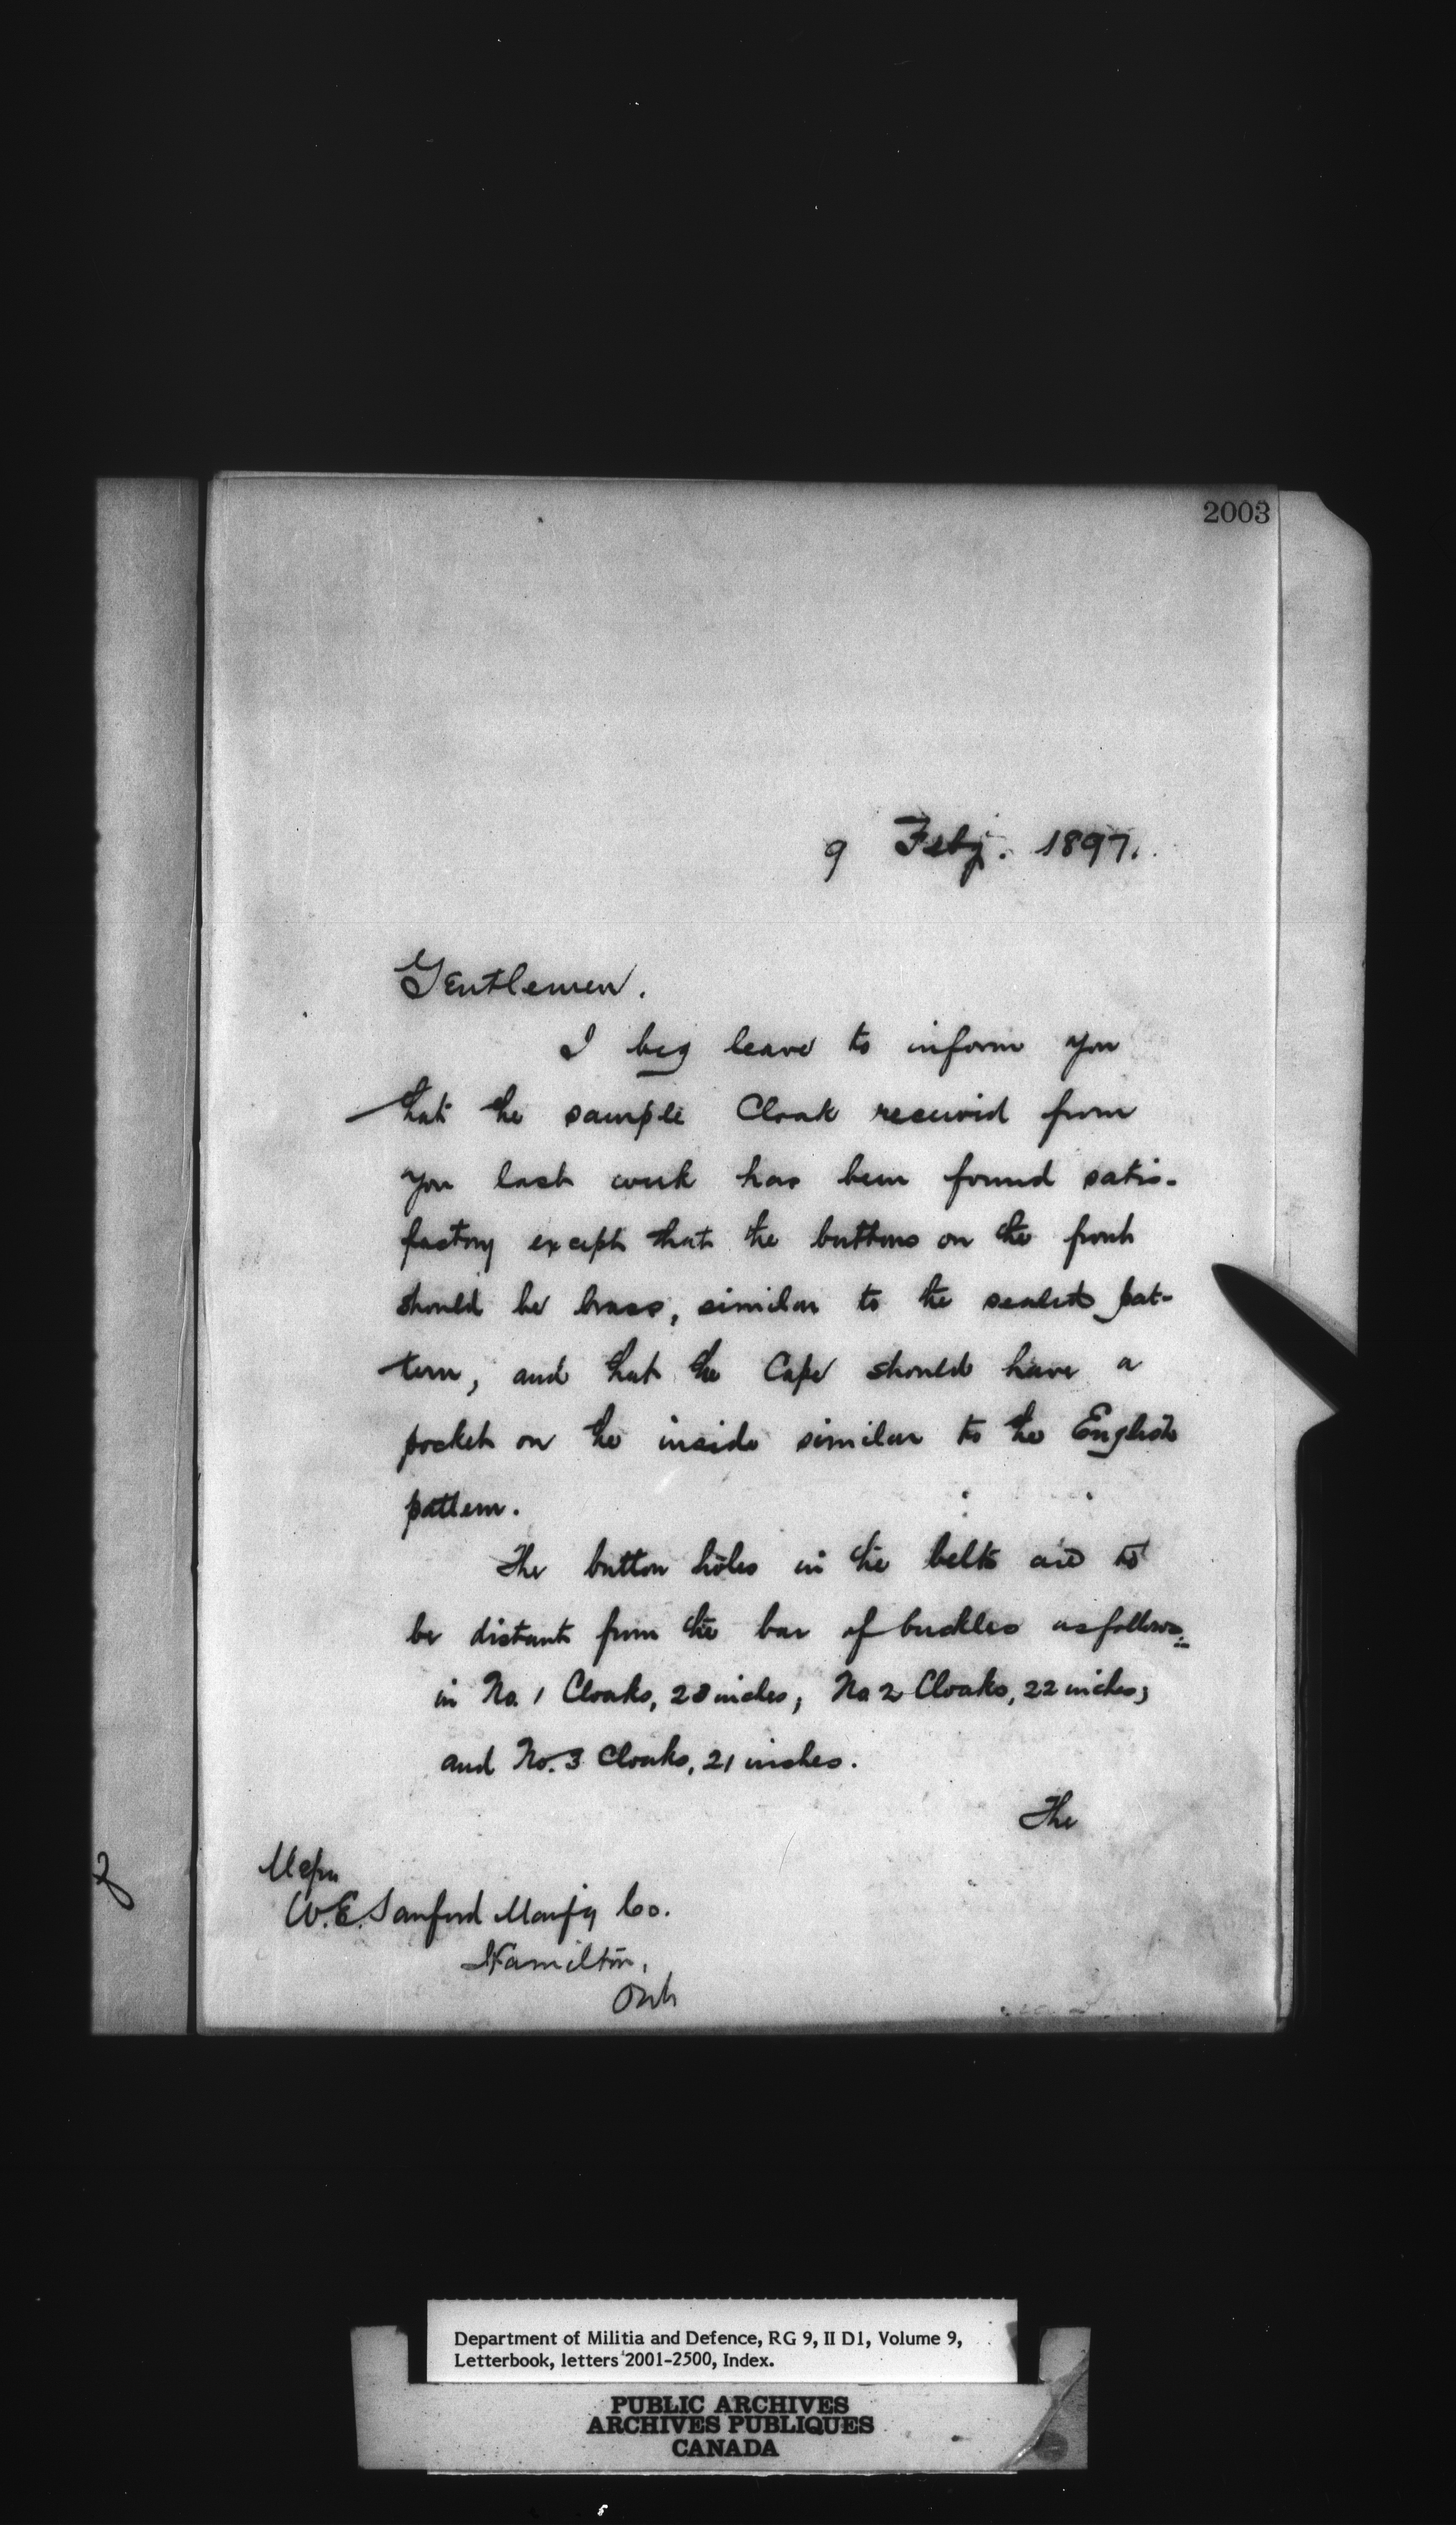 2003
9 Feby. 1897.
Gentlemen.
I beg leave to inform you
that the sample Cloak received from
you last week has been found satis-
factory except that the buttons on the front
should be brass, similar to the sealed pat-
tern, and that the Cape should have a
pocket on the inside similar to the English
pattern.
The button holes in the belts are to
be distant from the bar of buckles as follows:
in No. 1 Cloaks, 23 inches; No 2 Cloaks, 22 inches;
and No. 3 Cloaks, 21 inches.
The
Messrs
W.E. Sanford Manfg Co.
Hamilton,
Ont
Department of Militia and Defence, RG 9, II D1, Volume 9,
Letterbook, letters 2001-2500, Index.
PUBLIC ARCHIVES
ARCHIVES PUBLIQUES
CANADA